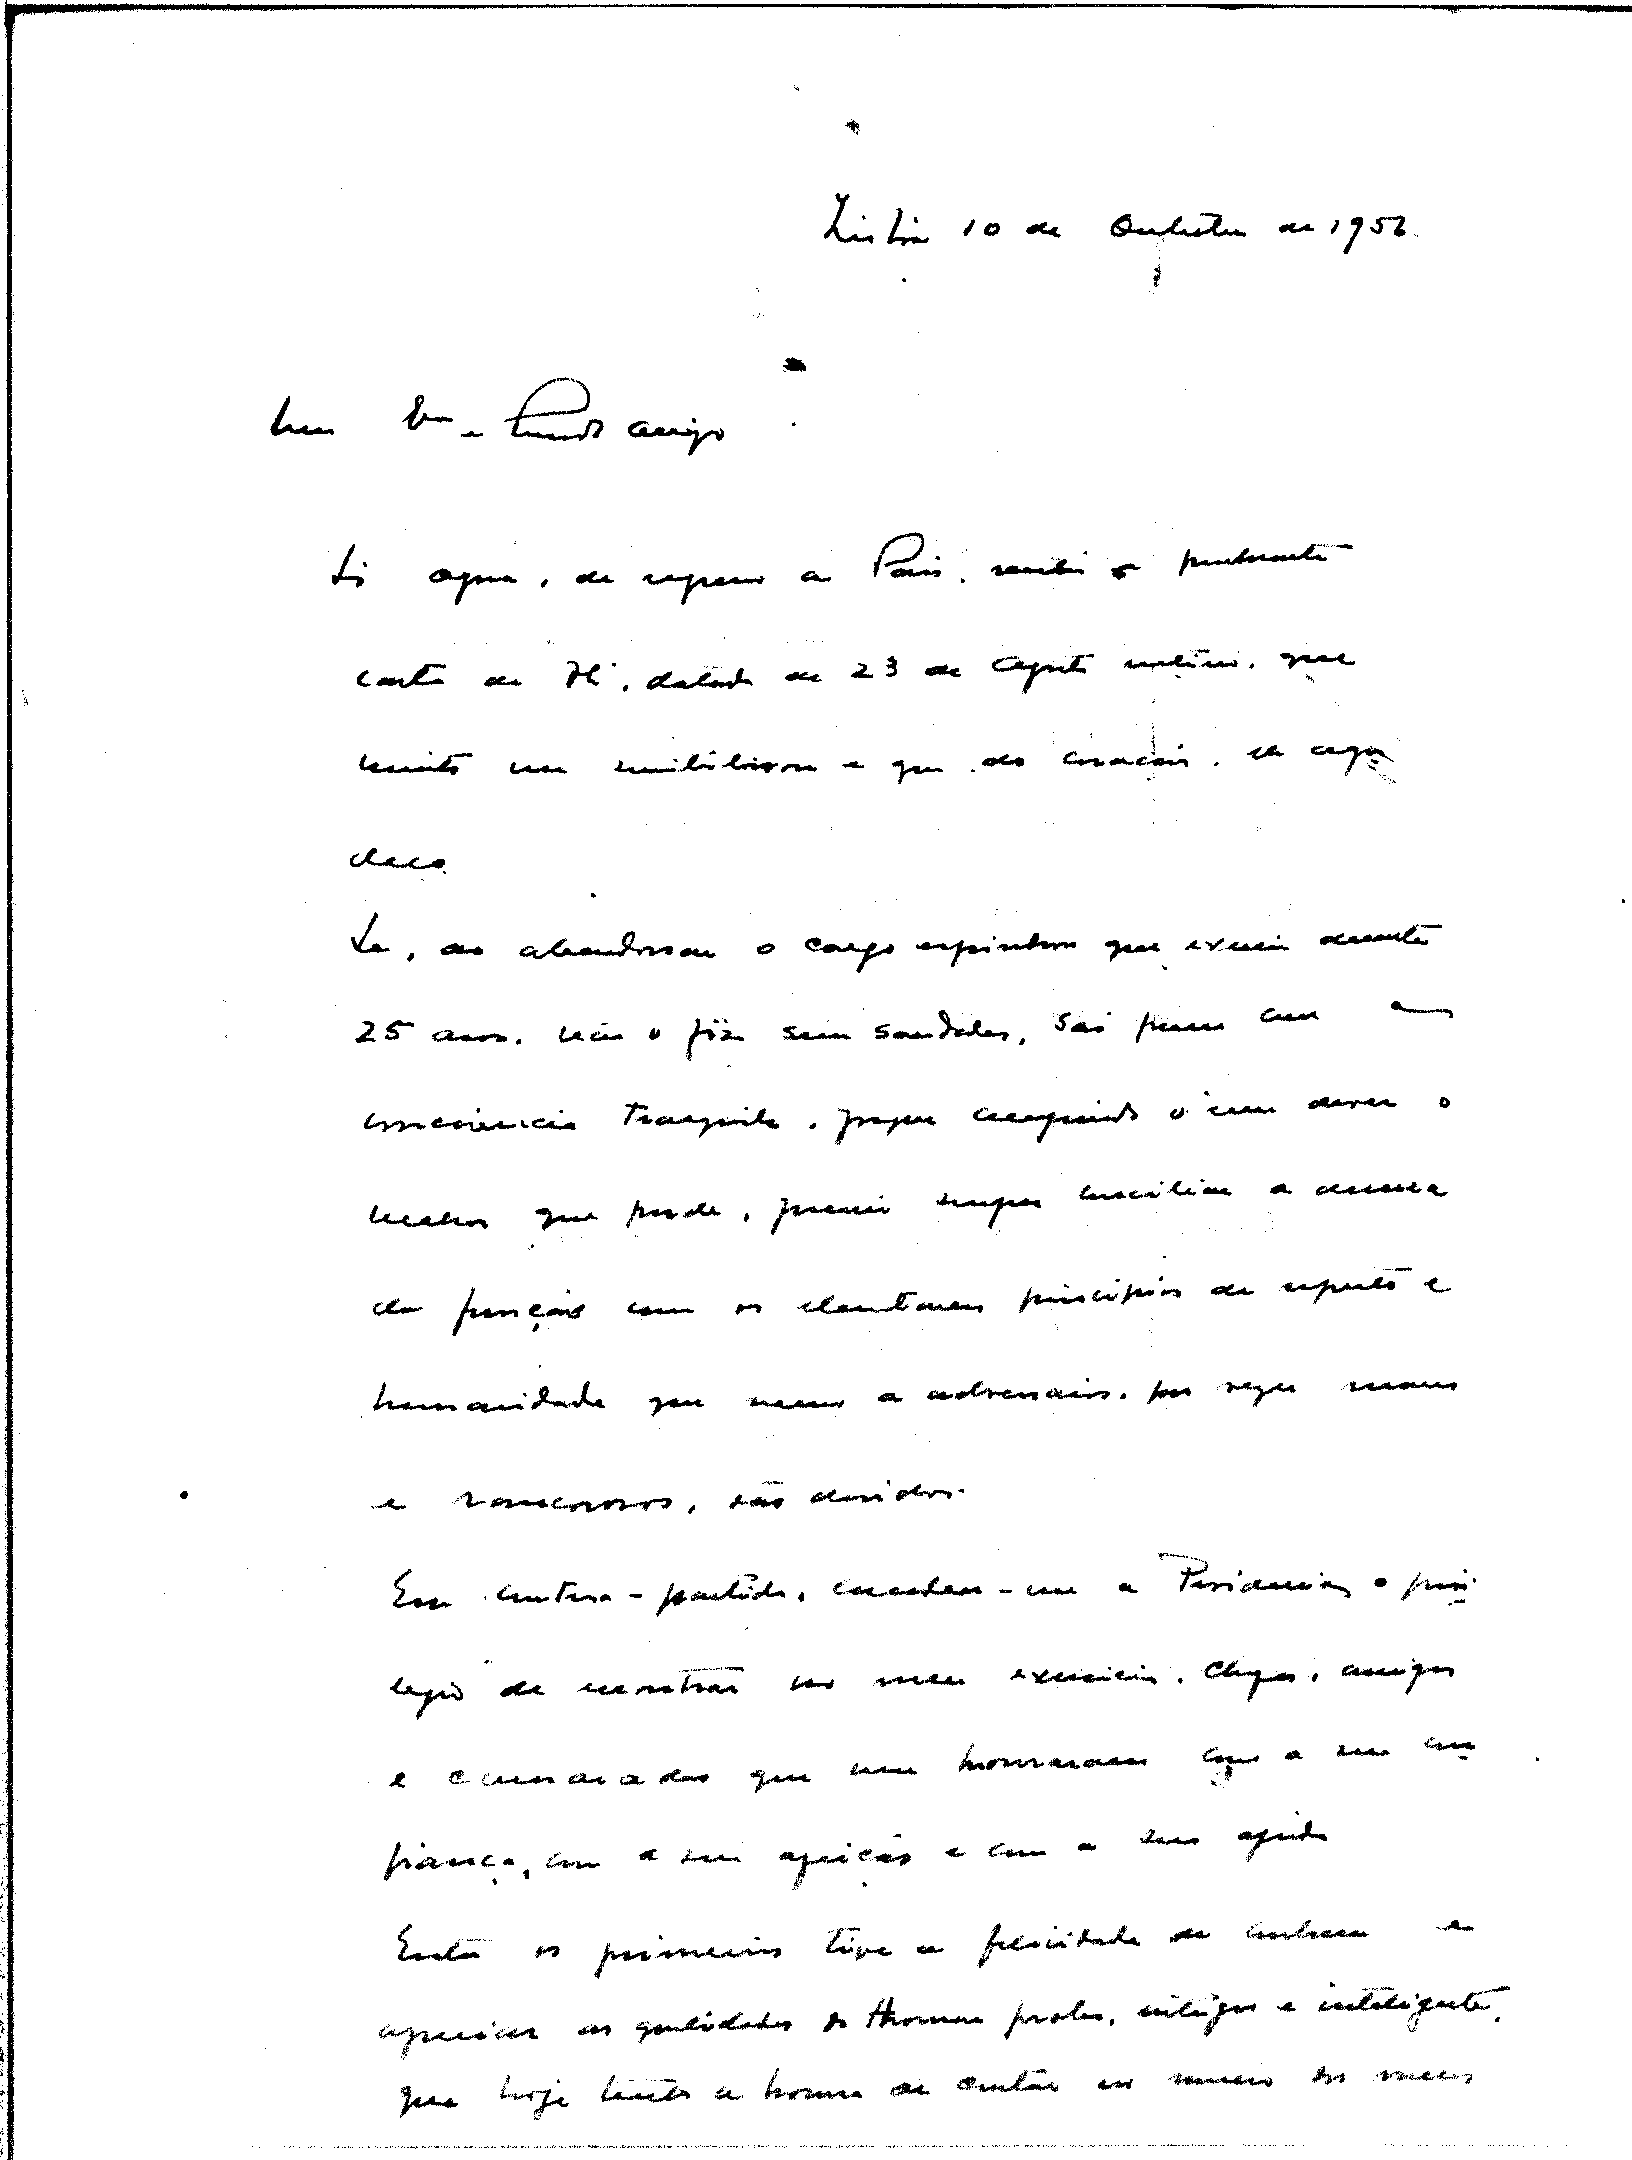 Lisboa 10 de Outubro de 1956
Meu Exmo e Prezado amigo
Só agora, de regresso a Paris, recebi a penhorante
carta de V., datada de 23 de Agosto último, que
muito me sensibilizou e que do coração, se agra
deço
Se, ao abandonar o cargo espinhoso que exerci durante
25 anos, não o fiz sem saudades, saí porém com a
consciência tranquila, porque cumprindo o meu dever o
melhor que pude, procurei sempre conciliar a dureza
da função com os elementares princípios de respeito e
humanidade que mesmo a adversários, por vezes maus
e rancorosos, são devidos.
Em contra-partida, concedeu-me a Providência, o privi
legio de encontrar no meu exercício, Chefes, amigos
e camaradas que me honraram com a sua con
fiança, com a sua afeição e com a sua ajuda
Entre os primeiros tive a felicidade de conhecer e
apreciar as qualidades do Homem probo, íntegro e inteligente,
que hoje tenho a honra de contar no número dos meus